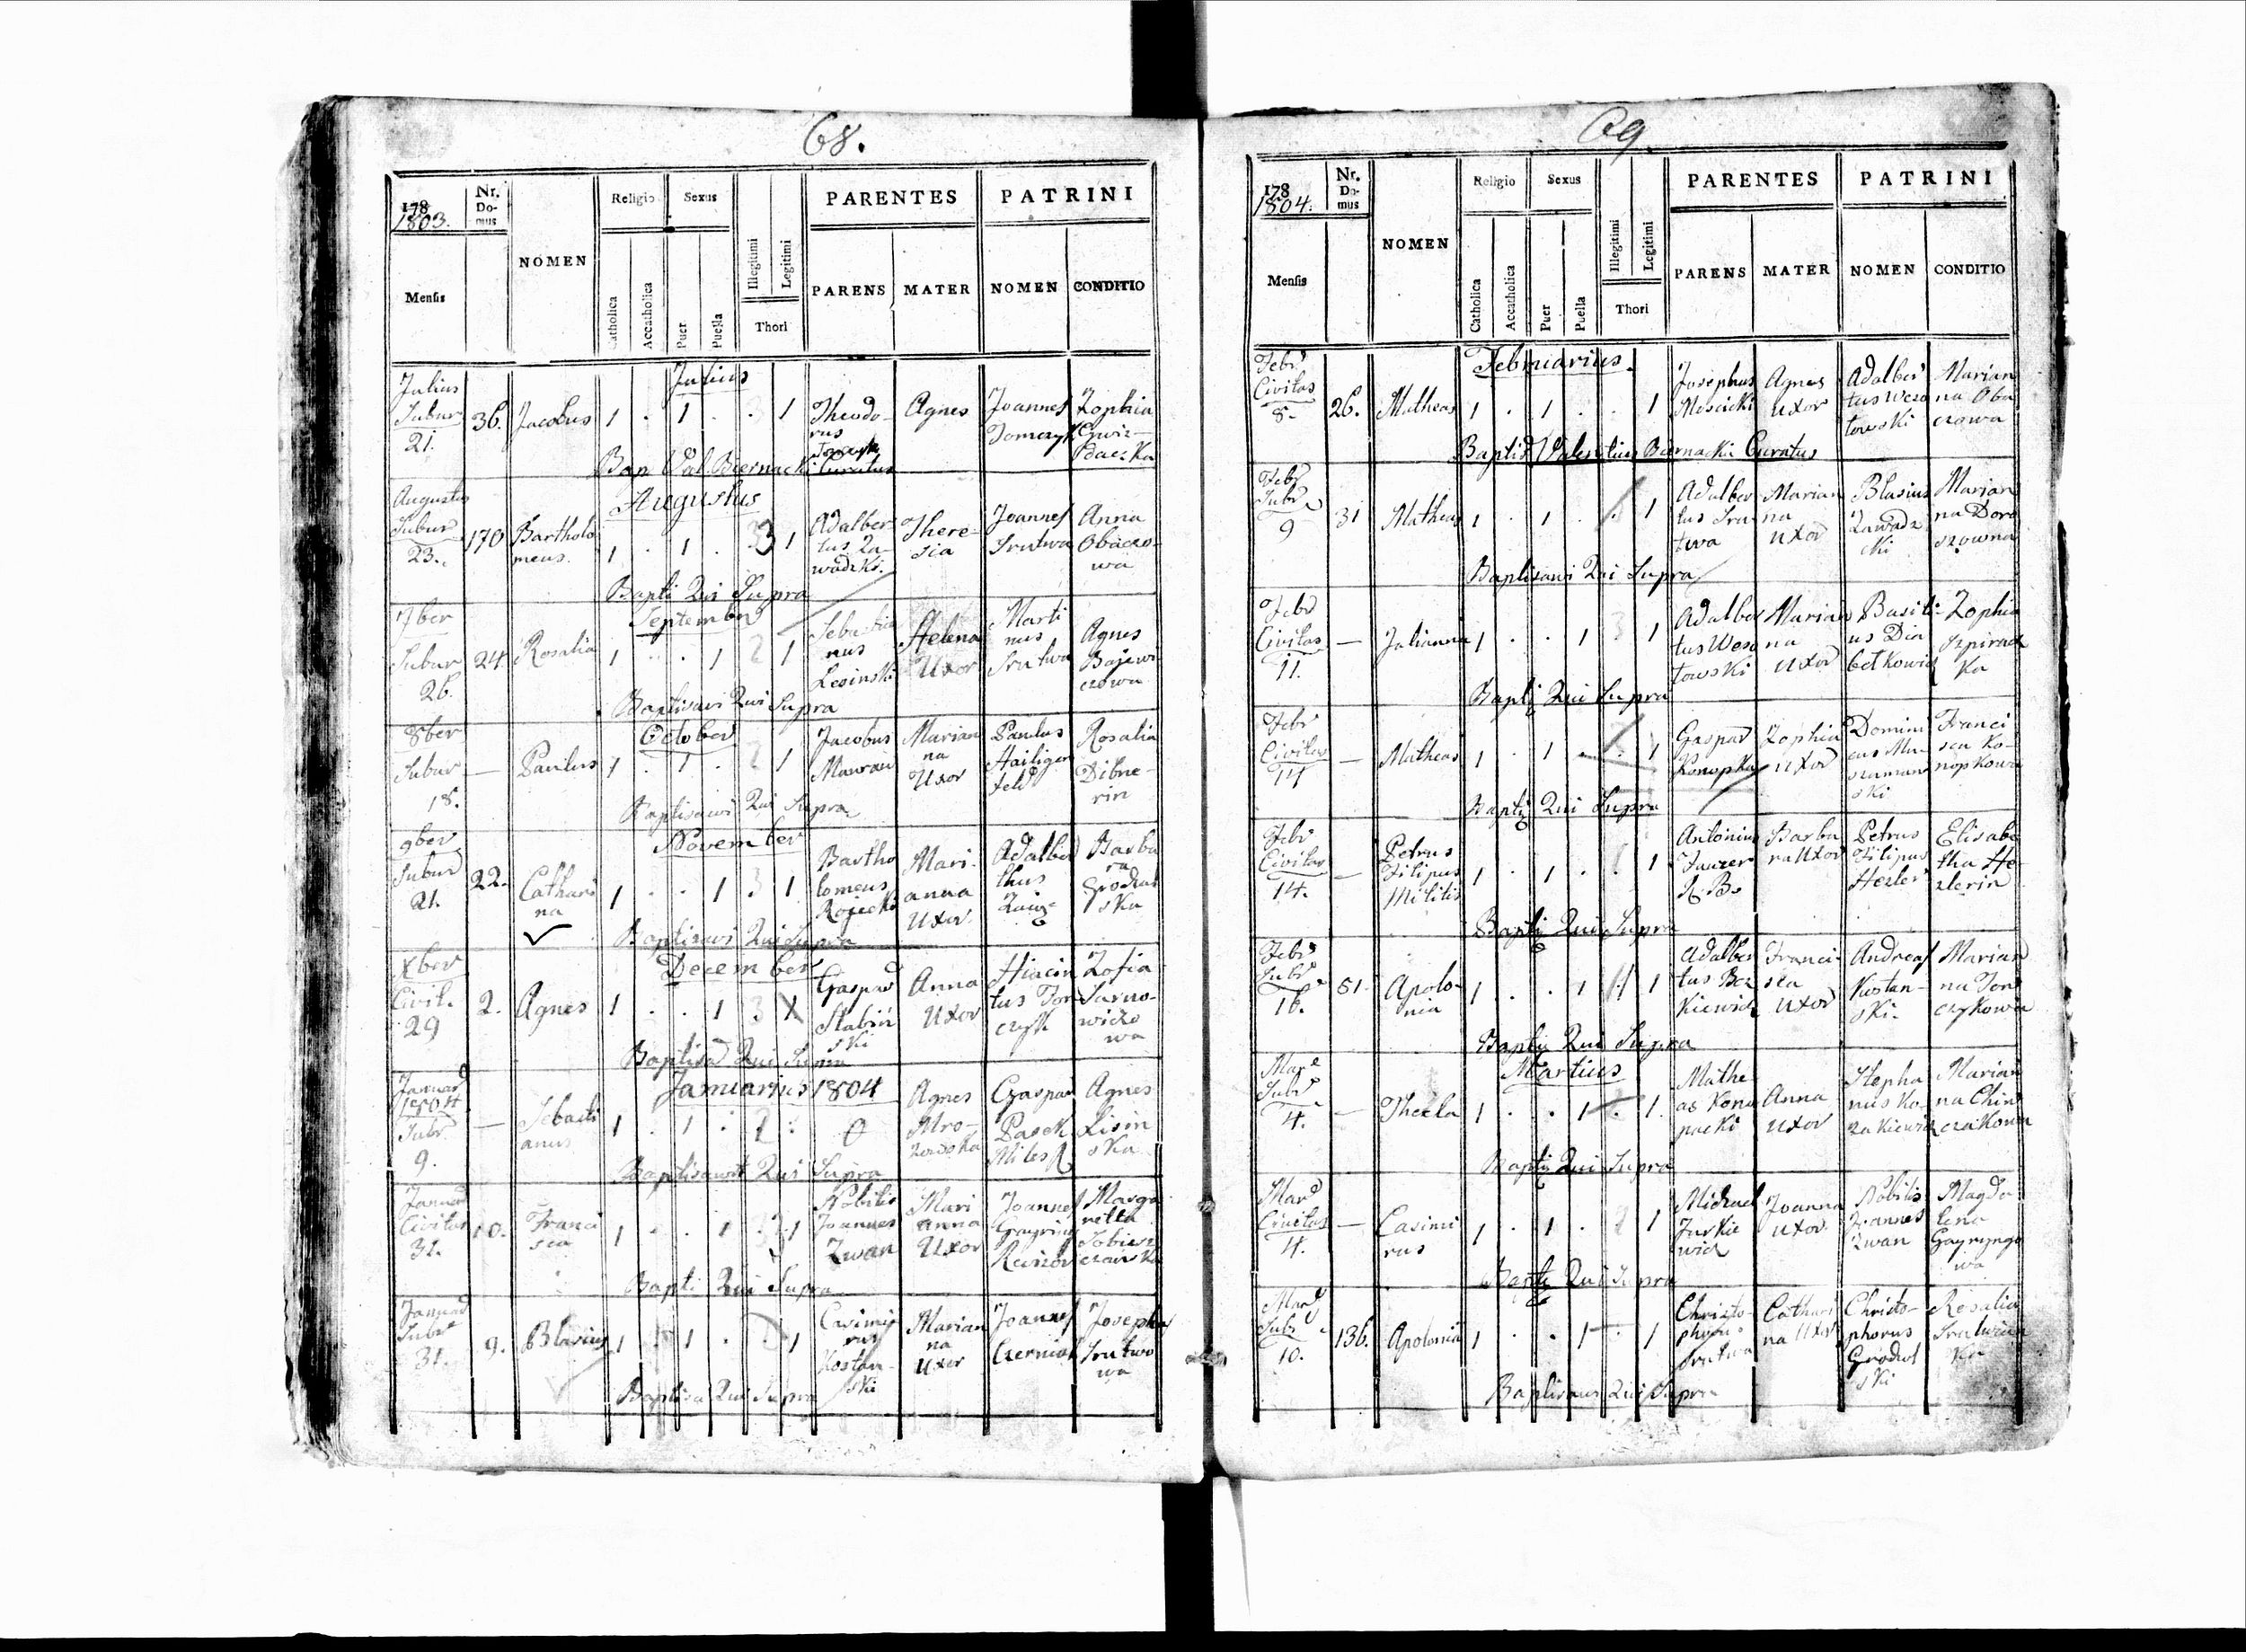 68.
178
1803.
Nr. Do- mus
NOMEN
Religio
Sexus
PARENTES
PATRINI
Mensis
Catholica
Accatholica
Puer
Puella
Illegitimi
Legitimi
Thori
PARENS
MATER
NOMEN
CONDITIO
Julius
Julius Subur 21. 36. Jacobus 1 . 1 . . 1 Theodo- rus Agnes Joannes Tomczyk Zophia
Bap Val Biernacki Curatus
Augustus
Augustus Subur 23. 170 Bartholo meus. 1 . 1 . 3 1 Adalber tus Za- wadzki. There- sia Joannes Srutwa Anna Obaczo- wa
Bapti Qui Supra
September
7ber Subur 26. 24. Rosalia 1 . . 1 2 1 Sebastia nus Lesinski Helena Uxor Marti nus Srutwa Agnes
Baptisavi Qui Supra
October
8ber Subur 18. — Paulus 1 . 1 . 2 1 Jacobus Marian na Uxor Paulus Hailigen feld Rosalia Dibne- rin
Baptisavi Qui Supra
November
9ber Subur 21. 22. Cathari na 1 . . 1 3 1 Bartho lomeus Rojecki Mari- anna Uxor Adalber thus Barba ra
Baptisavi Qui Supra
December
Xber Civit. 29 2. Agnes 1 . . 1 3 X Gaspar Slabin ski Anna Uxor Hiacin tus Tom czyk Zofia
Baptisa Qui Supra
Januarius 1804
Januar 1804 Subr. 9. — Sebasti anus 1 . 1 . 2 . 0 Agnes Mro- Gaspar Pasek Miles Agnes Lisin ska
Baptisavit Qui Supra
Januar Civitas 31. 10. Franci sca 1 . . 1 2 1 Nobilis Joannes Zwan Mari anna Uxor Joannes Marga retta
Bapti Qui Supra
Januar Subr 31. 9. Blasius 1 . 1 . . 1 Casimi rus Kostan- ski Marian na Uxor Joannes Czerniak Josepha Srutwo wa
Baptisa Qui Supra
69.
178
1804.
Nr. Do- mus
NOMEN
Religio
Sexus
PARENTES
PATRINI
Mensis
Catholica
Accatholica
Puer
Puella
Illegitimi
Legitimi
Thori
PARENS
MATER
NOMEN
CONDITIO
Februarius.
Febr. Civitas 8. 26. Matheas 1 . 1 . . 1 Josephus Moscicki Agnes Uxor Adalber tus Weso towski Marian na Oba czowa
Baptis Valentius Biernacki Curatus
Febr Subr 9 31 Matheas 1 . 1 . . 1 Adalber tus Sru- twa Marian na Uxor Blasius Zawadz cki Marian na Doro szowna
Baptisavi Qui Supra
Febr Civitas 11. — Julianna 1 . . 1 3 1 Adalber tus Weso towski Marian na Uxor Basili- us Dia betkowicz Zophia
Bapti Qui Supra
Febr Civitas 14 — Matheas 1 . 1 . . 1 Gaspar Konopka Zophia Uxor Domini cus Mu- szaman ski Franci sca Ko- nopkowa
Bapti Qui Supra
Febr Civitas 14. — Petrus Filipus Militis 1 . 1 . . 1 Antonius Barba ra Uxor Petrus Filipus Hezler Elisabe tha He- zlerin
Bapti Qui Supra
Febr Subr 16. 51. Apolo- nia 1 . . 1 . 1 Adalber tus Ber kiewicz Franci- sca Uxor Andreas Kostan- ski. Marian na Tom czykowa
Bapti Qui Supra
Martius
Mar Subr 4. — Thecla 1 . . 1 . 1. Mathe- as Kono packi Anna Uxor Stepha nus Ko- zakiewicz Marian na
Bapti Qui Supra
Mar Civitas 4. — Casimi rus 1 . 1 . 2 1 Michael Jurkie wicz Joanna Uxor. Nobilis Joannes Zwan Magda- lena
Bapti Qui Supra
Mar Subr 10. 136. Apolonia 1 . . 1 . 1 Christo- phorus Srutwa Cathari na Uxor Christo- phorus Rosalia
Baptisavi Qui Supra